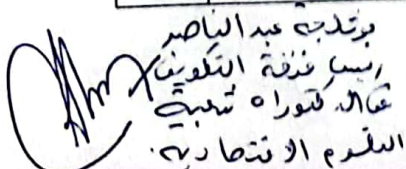 بوقلاجة عبد الناصر
رئيس فرقة التكوين
في الدكتوراه شعبة
العلوم الاقتصادية.